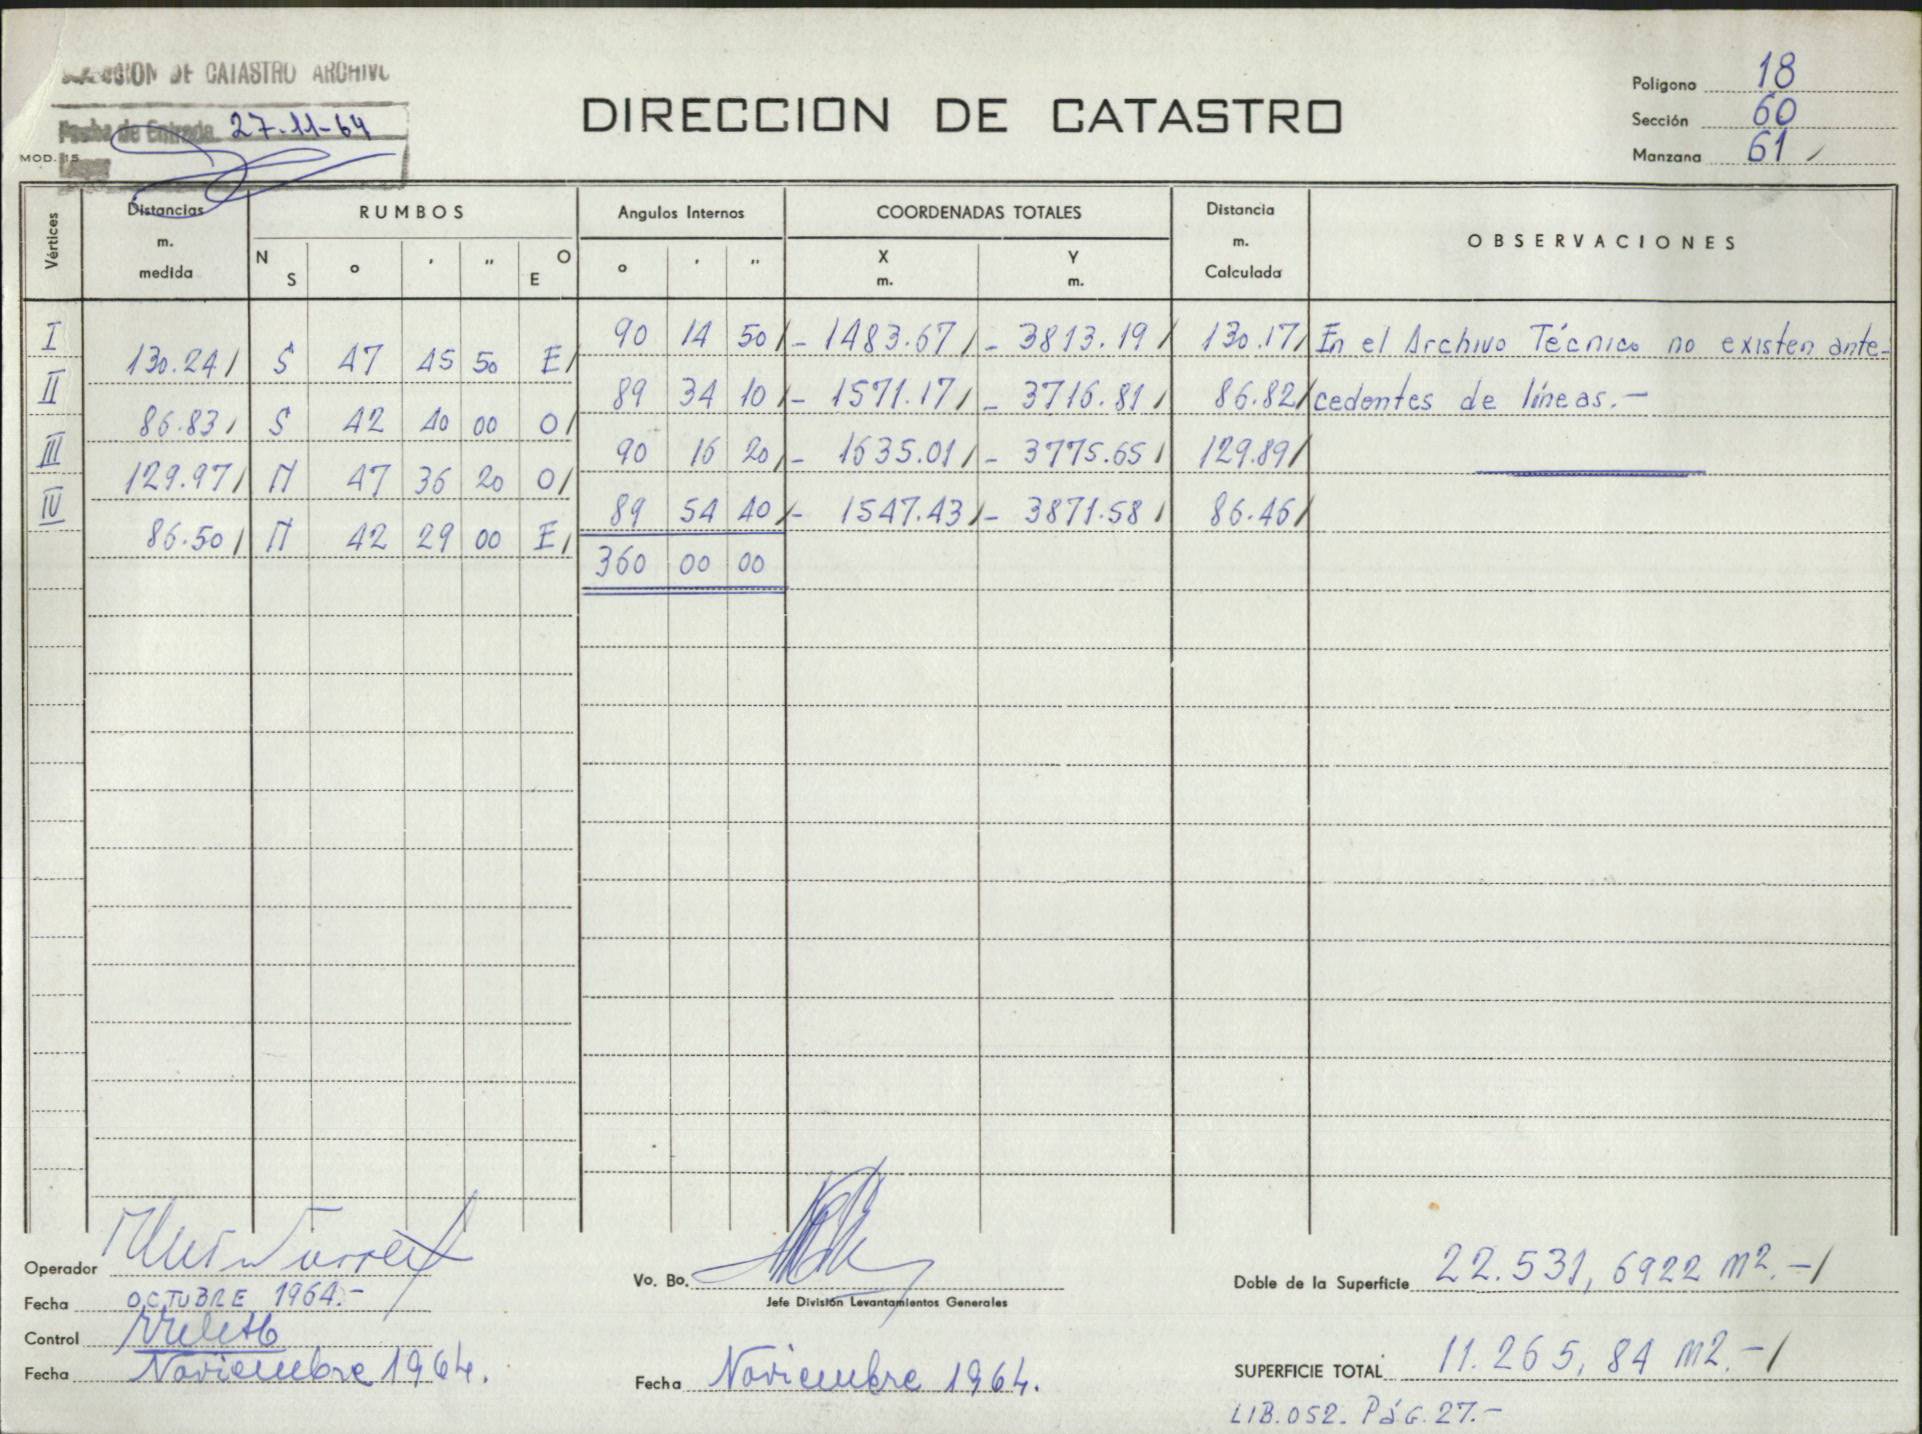 DE CATASTRO ARCHIVO
Fecha de Entrada 27-11-64
MOD. 15
DIRECCION DE CATASTRO
Polígono 18
Sección 60
Manzana 61
Vértices
Distancias m. medida
RUMBOS
N S ° ' " E O
Angulos Internos
° ' "
COORDENADAS TOTALES
X m. Y m.
Distancia m. Calculada
OBSERVACIONES
I 90 14 50 - 1483.67 - 3813.19 130.17 En el Archivo Técnico no existen ante-
130.24 S 47 45 50 E
II 89 34 10 - 1571.17 - 3716.81 86.82 cedentes de líneas.-
86.83 S 42 40 00 O
III 90 16 20 - 1635.01 - 3775.65 129.89
129.97 N 47 36 20 O
IV 89 54 40 - 1547.43 - 3871.58 86.46
86.50 N 42 29 00 E
360 00 00
Operador
Fecha OCTUBRE 1964.-
Control
Fecha Noviembre 1964.
Vo. Bo.
Jefe División Levantamientos Generales
Fecha Noviembre 1964.
Doble de la Superficie 22.531,6922 m2.-
SUPERFICIE TOTAL 11.265,84 m2.-
LIB.052. PáG.27.-